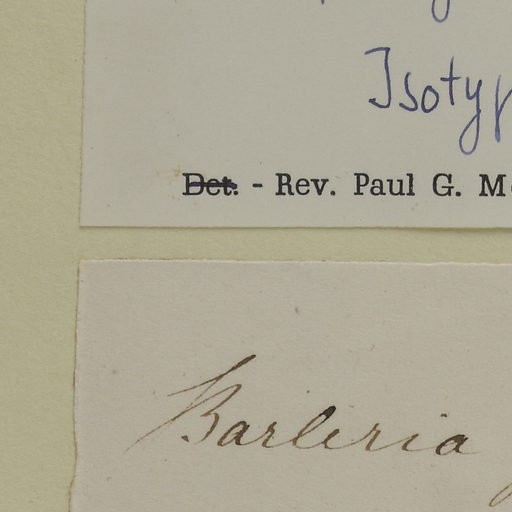 Isotyp
Det. - Rev. Paul G. M
Barleria